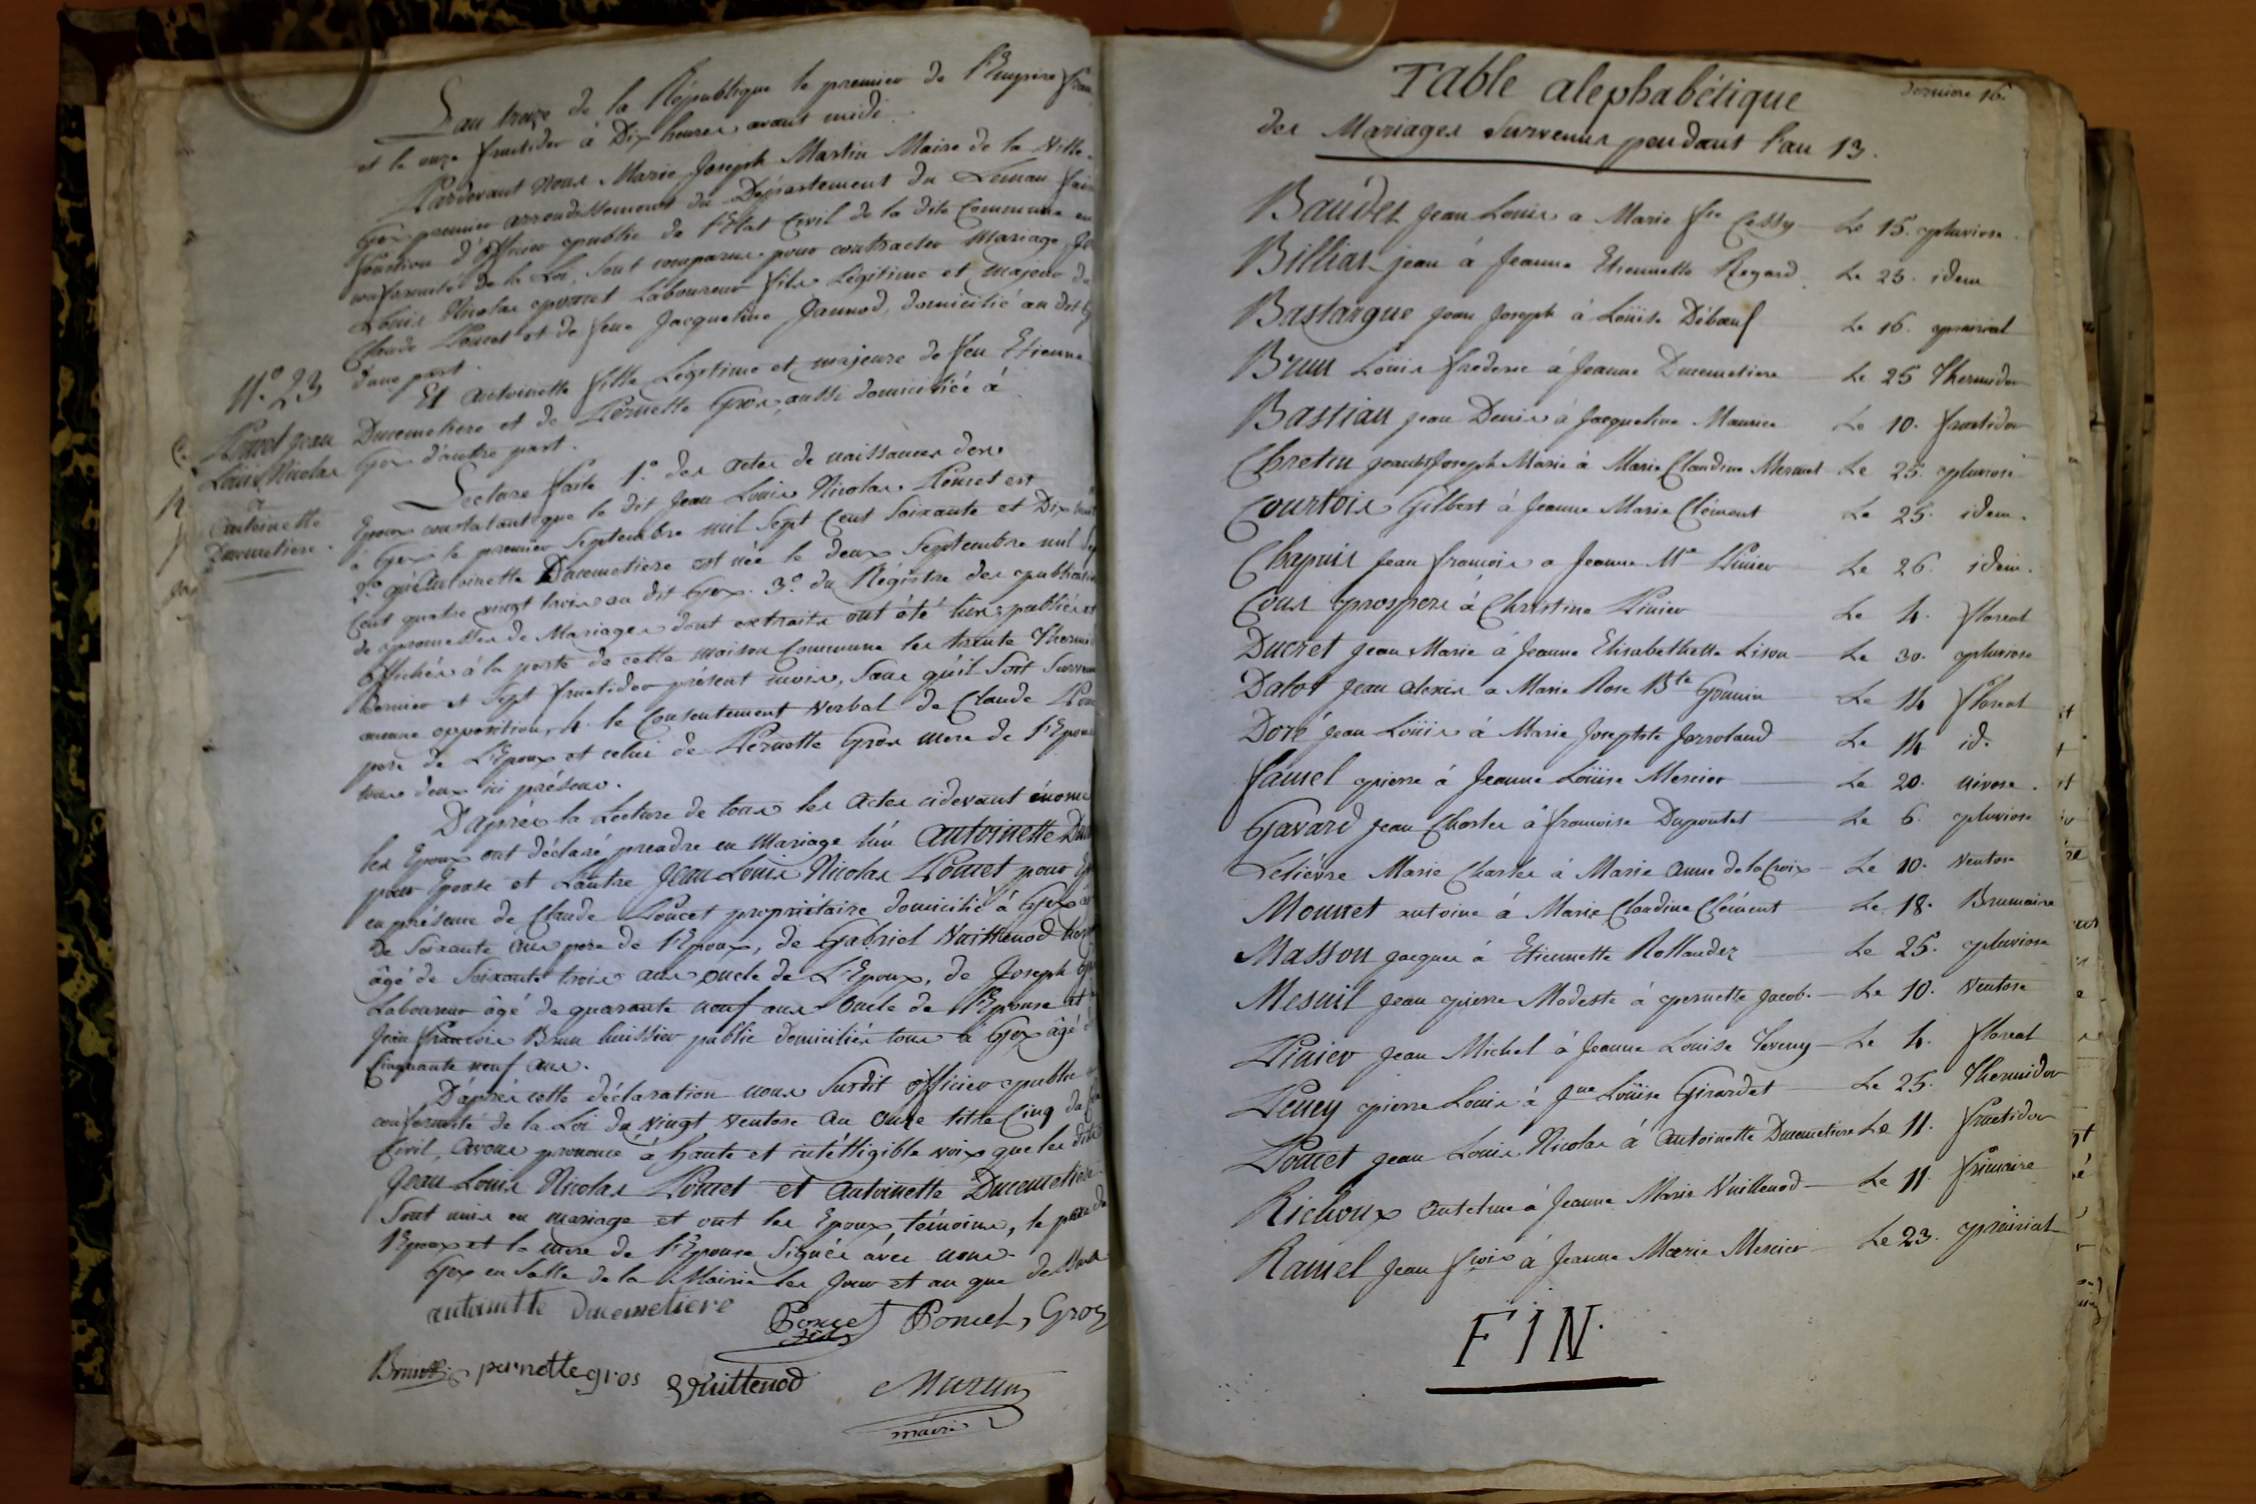 L'an treize de la République le premier de l'Empire fran
et le onze fructidor à Dix heures avant midi.
Pardevant nous Marie Joseph Martin Maire de la Ville
Gex premier arrondissement du Département du Leman fais
fonction d'officier public de l'Etat Civil de la dite Commune en
conformité de la Loi, sont comparus pour contracter Mariage, Je
Louis Nicolas Poncet Laboureur fils Légitime et majeur de
Claude Poncet et de feue Jacqueline Jannod, domicilié au dit G
d'une part.
Et antoinette fille Légitime et majeure de feu Etienne
Ducemetiere et de Pernette Gros, aussi domiciliée à
Gex d'autre part.
N.º 23
Poncet Jean
Louis Nicolas
à
antoinette
Ducemetiere.
Lecture faite 1.º des actes de naissances des
Epoux constatant que le dit Jean Louis Nicolas Poncet est
à Gex le premier Septembre mil Sept Cent Soixante et Dix
2.º qu'Antoinette Ducemetiere est née le deux Septembre mil Sep
Cent quatre vingt trois au dit Gex. 3.º du Régistre des publications
de promesses de Mariages dont extraits ont été lus, publiés et
affichés à la porte de cette maison Commune les trente Thermid
Dernier et Sept fructidor présent mois, sans qu'il soit Survenu
aucune opposition, 4. le Consentement verbal de Claude Pon
pere de L'Epoux et celui de Pernette Gros mere de l'Epouse
tous deux ici présens.
D'après la Lecture de tous les actes cidevant énoncé
les Epoux ont déclaré prendre en Mariage l'un antoinette Du
pour Epouse et L'autre Jean Louis Nicolas Poncet pour Ep
en présence de Claude Poncet propriétaire domicilié à Gex
de Soixante ans pere de l'Epoux, de Gabriel Vuillenod
âgé de Soixante trois ans oncle de L'Epoux, de Joseph
Laboureur âgé de quarante neuf ans oncle de l'Epouse et
Jean francois Brun huissier public domiciliés tous à Gex âgé
Cinquante neuf ans.
D'après cette déclaration nous Susdit officier public
conformité de la Loi du vingt Ventose an Onze titre Cinq du
Civil, avons prononcé à haute et intélligible voix que les dits
Jean Louis Nicolas Poncet et antoinette Ducemetiere
Sont unis en mariage et ont les Epoux, témoins, le pere de
l'Epoux et la mere de l'Epouse Signés avec nous.
Gex en Salle de la Mairie les Jour et an que dessus
antoinette ducemetiere Poncet fils Poncet, Gros
Brun pernette gros Vuillenod Martin
maire
Derniere 16.
Table alephabétique
des Mariages Survenus pendant l'an 13.
Baudet Jean Louis a Marie fse Cessy Le 15. pluviose
Billiat jean à Jeanne Etiennette Regard Le 25. idem
Bastargue Jean Joseph à Loüise Débœuf Le 16. prairial
Brun Loüis frederic à Jeanne Ducemetiere Le 25 Thermidor
Bastian Jean Denis à Jacqueline Maurice Le 10. fructidor
Chretin Joseph Marie à Marie Claudine Mermet Le 25. pluviose
Courtois Gilbert à Jeanne Marie Clément Le 25. idem.
Chapuis Jean francois a Jeanne Me Pinier Le 26. idem.
Cous prosper à Christine Pinier Le 4. floreal
Ducret Jean Marie à Jeanne Elisabethette Lison Le 30. pluviose
Dalot Jean alexis a Marie Rose Bte Gonnin Le 14 floreal
Doré Jean Loüis à Marie Josephte Jerroland Le 14 id.
famel pierre à Jeanne Loüise Mercier Le 20. nivose.
Gavard Jean Charles à francoise Dupontet Le 6. pluviose
Lelièvre Marie Charles à Marie Anne de la Croix Le 10. Ventose
Monnet antoine à Marie Claudine Clément Le 18. Brumaire
Masson Jacques à Etiennette Rollandez Le 25. pluviose
Mesnil Jean pierre Modeste à pernette Jacob. Le 10. Ventose
Pinier Jean Michel à Jeanne Louise Leveny Le 4. floreal
Peney pierre Louis à Jne Loüise Girardet Le 25. Thermidor
Poncet Jean Louis Nicolas à Antoinette Ducemetiere Le 11. fructidor
Richoux antelme à Jeanne Marie Vuillenod Le 11 frimaire
Ramel Jean fcois à Jeanne Marie Mercier Le 23. prairial
FIN.